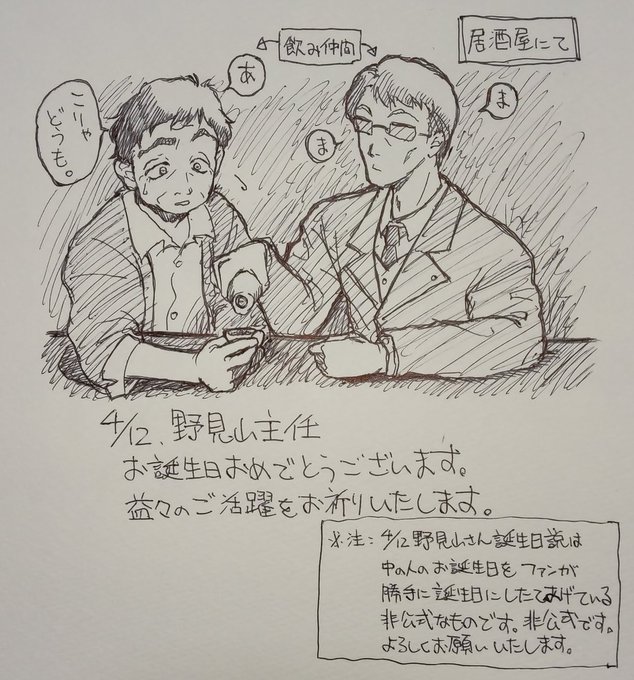 居酒屋にて
飲み仲間
ま
ま
あ
こりゃ
どうも。
4/12、野見山主任
お誕生日おめでとうございます。
益々のご活躍をお祈りいたします。
※注：4/12野見山さん誕生日説は
中の人のお誕生日をファンが
勝手に誕生日にしたてあげている
非公式なものです。非公式です。
よろしくお願いいたします。